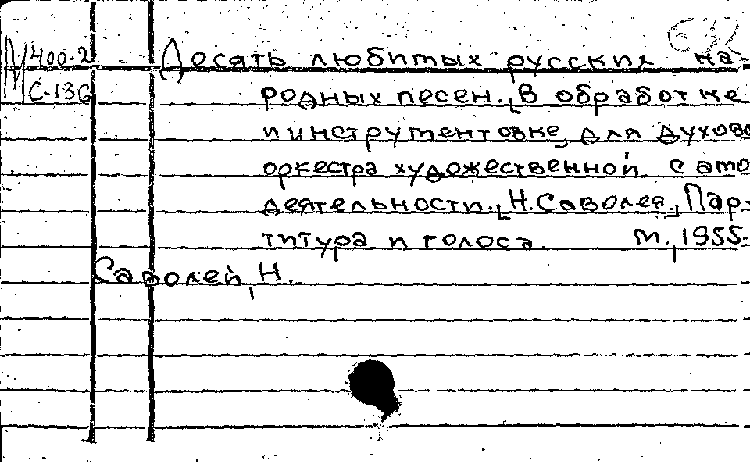 400-2 Десять любимых русских на-
С-136 родных песен. В обработке
и инструментовке для духово
оркестра художественной само
деятельности. Н. Саволея. Пар-
титура и голоса. М., 1955.
Саволей, Н.